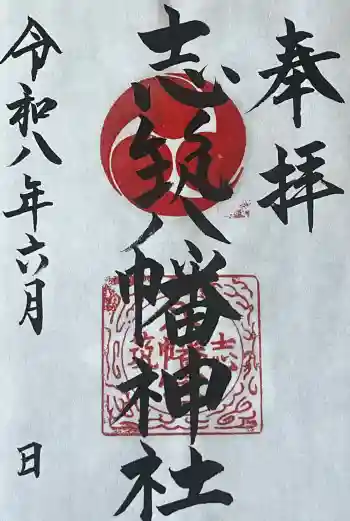 奉拝
志筑八幡神社
令和八年六月 日